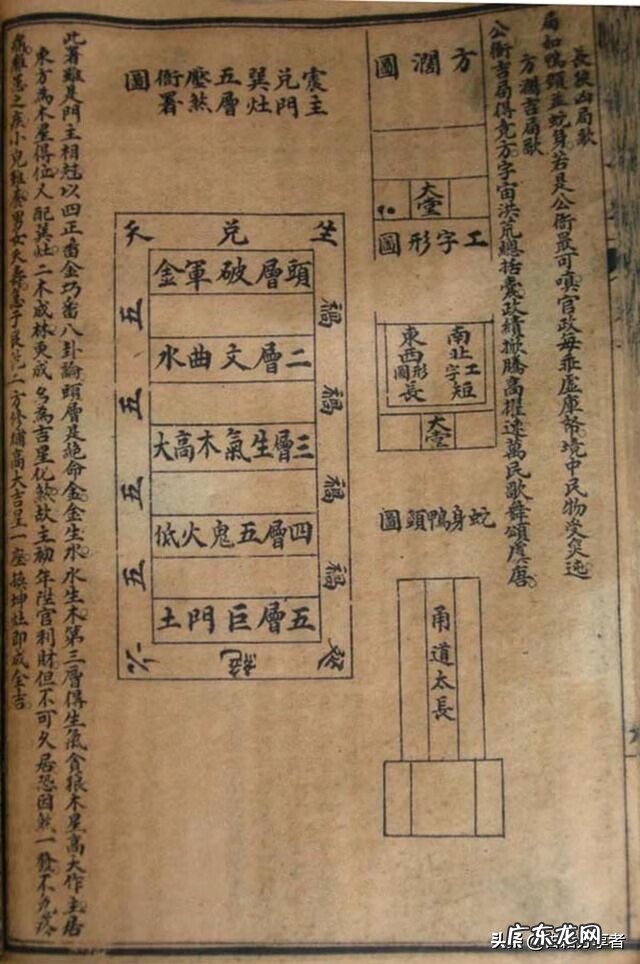 長狹凶局歌
局如鴨頭並蛇身若是公衙最可嗔官政每乖虛庫帑境中民物受災迍
方濶吉局歌
公衙吉局得竟方字宙洪荒總括囊政績騰高擢速萬民歌舞頌虞唐
方濶圖
大堂
工字形圖
南北工字短
東西圖形長
大堂
蛇身鴨頭圖
甬道太長
震主兌門巽灶五層壓煞衙署圖
生兌天
頭層破軍金
二層文曲水
三層生氣木高大
四層五鬼火低
五層巨門土
禍
禍
禍
禍
五
五
五
五
延絕六
此署雖是門主相尅以四正番金巧番八卦論頭層是絕命金金生水水生木第三層得生氣貪狼木星高大作主居
東方為木星得位又配巽灶二木成林更成名為吉星化煞故主初年陞官利財但不可久居恐因煞一發不免疼
之疾小兒難養男女夭壽子艮乾二方修補高大吉星一座換坤灶即成全吉
头条
广东龙网
享者